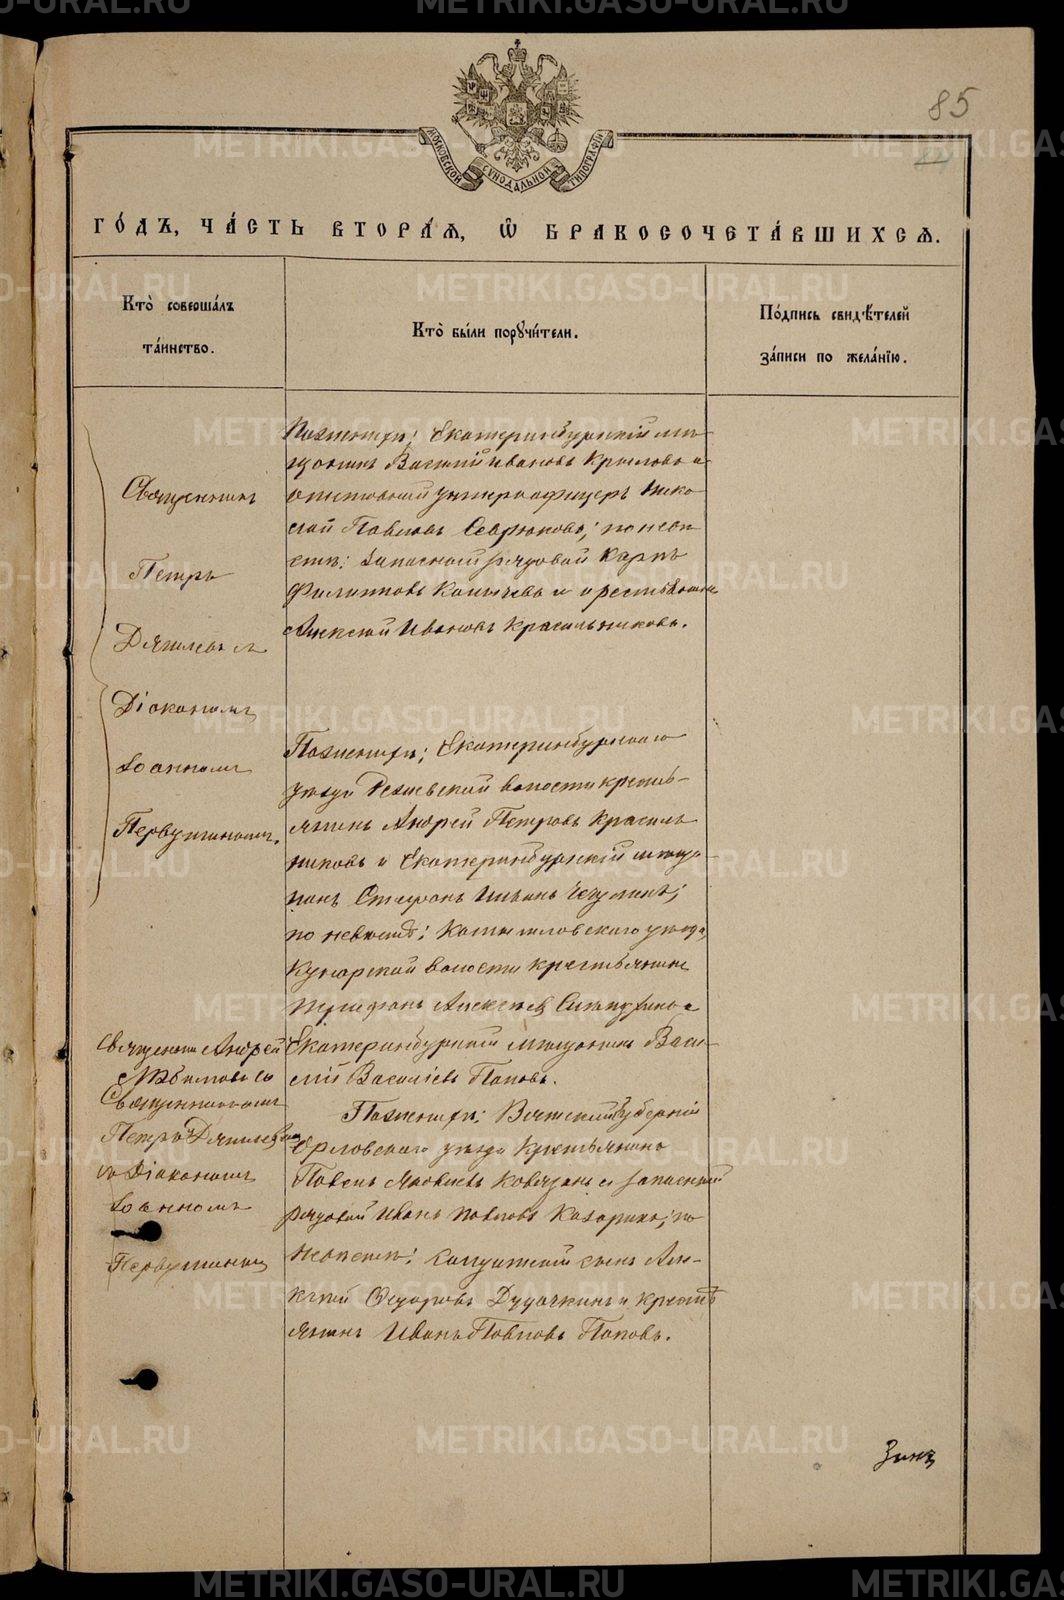 METRIKI.GASO-URAL.RU
85
МОСКОВСКОЙ СѴНОДАЛЬНОЙ ТИПОГРАФІИ
ГО́ДЪ, ЧА́СТЬ ВТОРА́Я, Ѿ БРАКОСОЧЕТА́ВШИХСЯ.
Кто̀ соверша́лъ
та́инство.
Кто̀ бы́ли порꙋчи́тели.
По́дпись свидѣ́телей
за́писи по жела́нїю.
Священникъ
Петръ
Дягилевъ съ
Діакономъ
Іоанномъ
Первушинымъ.
По женихѣ: Екатеринбургскій мѣ-
щанинъ Василій Ивановъ Крыловъ и
унтеръ офицеръ Нико-
лай Павловъ Севрюковъ; по невѣ-
стѣ: запасный рядовой Карпъ
Филипповъ Копычевъ и крестьянинъ
Алексѣй Ивановъ Красильниковъ.
По женихѣ: Екатеринбургскаго
уѣзда волости кресть-
янинъ Андрей Петровъ Красиль-
никовъ и Екатеринбургскій мѣща-
нинъ Стефанъ Ильинъ
по невѣстѣ: Камышловскаго уѣзда,
Кунарской волости крестьянинъ
Алексѣевъ и
Екатеринбургскій мѣщанинъ Васи-
лій Василіевъ Поповъ.
Священникъ Андрей
съ
Священникомъ
Петромъ Дягилевымъ
съ Діакономъ
Іоанномъ
Первушинымъ
По женихѣ: Вятской губерніи
Орловскаго уѣзда крестьянинъ
Павелъ Яковлевъ и запасный
рядовой Иванъ Павловъ по
невѣстѣ: солдатскій сынъ Але-
ксѣй Ѳедоровъ Дудочкинъ и кресть-
янинъ Иванъ Павловъ Поповъ.